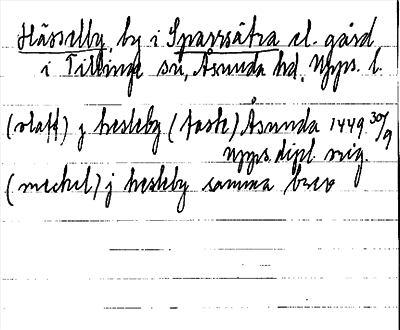 Hässelby, by i Sparrsätra el. gård
i Tillinge sn, Åsunda hd, Upps. l.
(olaff) j hesleby (fast) Åsunda 1449 30/9
Upps. dipl. orig.
(mechel) j hesleby samma brev